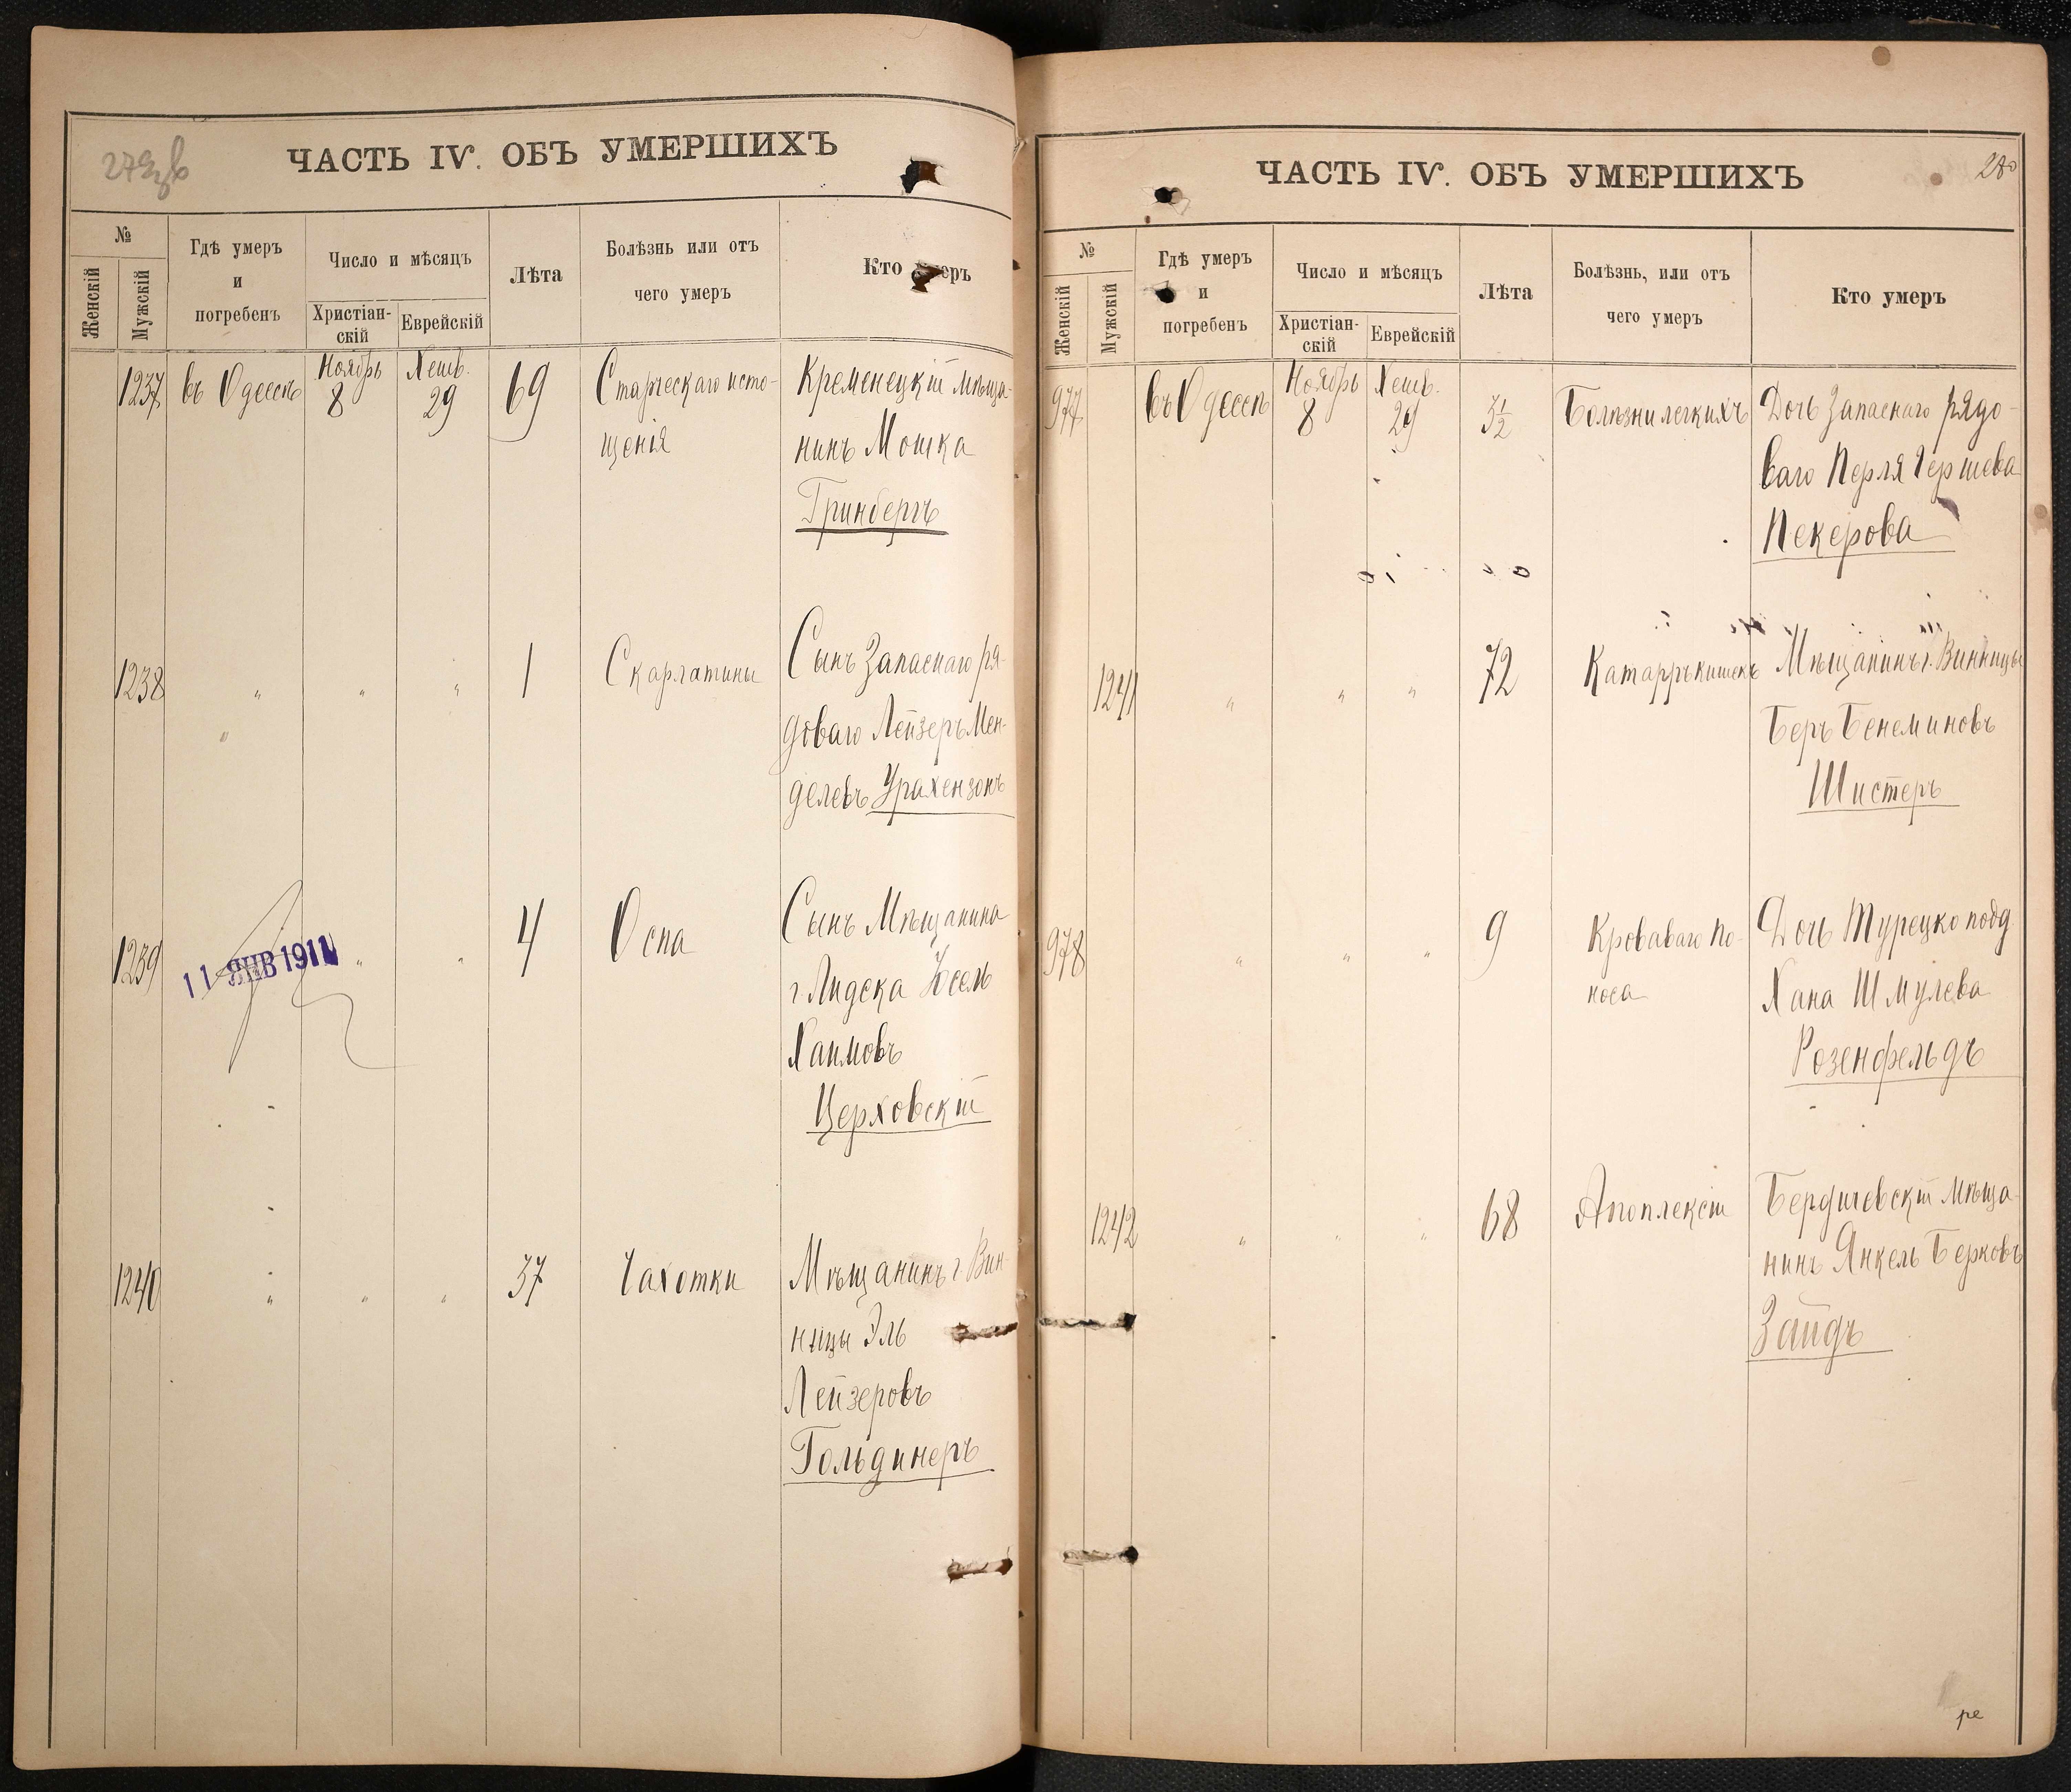 ЧАСТЬ IV. ОБЪ УМЕРШИХЪ
№
Женскій
Мужскій
Гдѣ умеръ
и
погребенъ
Число и мѣсяцъ
Христіан-
скій
Еврейскій
Лѣта
Болѣзнь или отъ
чего умеръ
Кто умеръ
1237 въ Одессѣ Ноябрь 8 Хешв. 29 69 Старческаго исто-
щенія
Кременецкій мѣща-
нинъ Мошка
Гринбергъ
1238 " " " 1 Скарлатины
Сынъ Запаснаго ря-
доваго Лейзеръ Мен-
делевъ Урахензонъ
1239 " " 4 Оспа
11 ЯНВ 1911
Сынъ Мѣщанина
г Лидска Іосель
Хаимовъ
Церховскій
1240 " " " 37 Чахотки
Мѣщанинъ г. Вин-
ницы Эль
Лейзеровъ
Гольдинеръ
ЧАСТЬ IV. ОБЪ УМЕРШИХЪ
280
№
Женскій
Мужскій
Гдѣ умеръ
и
погребенъ
Число и мѣсяцъ
Христіан-
скій
Еврейскій
Лѣта
Болѣзнь, или отъ
чего умеръ
Кто умеръ
977 въ Одессѣ Ноябрь 8 Хешв. 29 3½ Болѣзни легкихъ
Дочь Запаснаго рядо-
ваго Перля Гершева
Пекерова
1241 " " " 72 Катарръ кишекъ
Мѣщанинъ г. Винницы
Беръ Бенеминовъ
Шистеръ
978 " " " 9 Кроваваго по-
носа
Дочь Турецко подд.
Хана Шмулева
Розенфельдъ
1242 " " " 68 Апоплексіи
Бердичевскій мѣща-
нинъ Янкель Берковъ
Зайдъ
ре